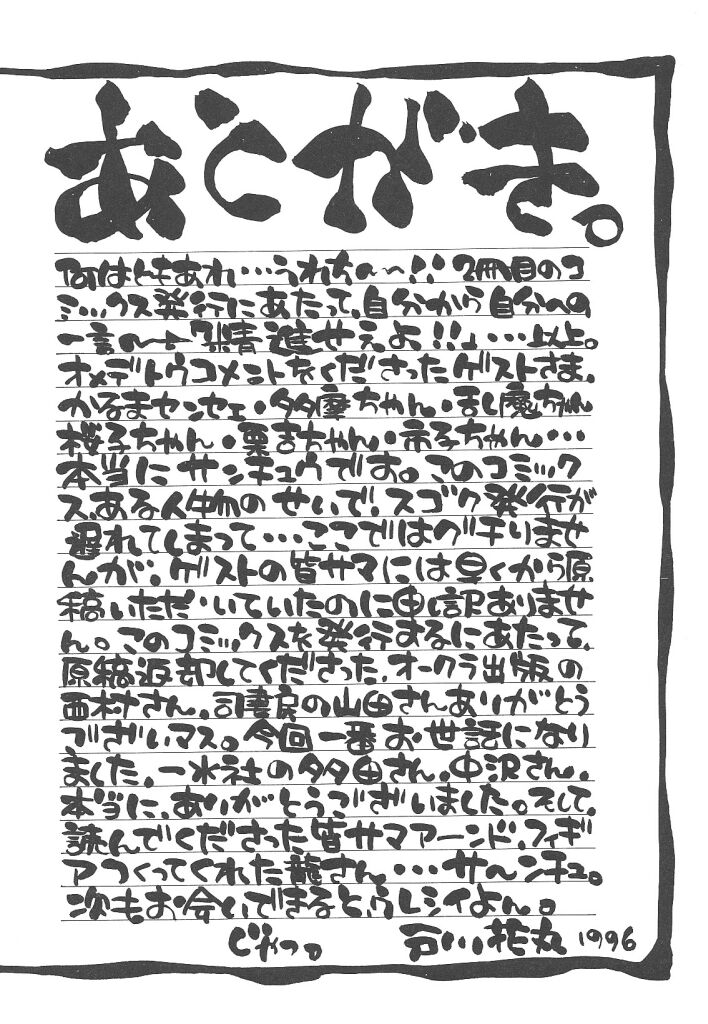 あとがき。
何はともあれ…うれちぃ〜!! 2冊目のコ
ミックス発行にあたって、自分から自分への
一言〜っ「精進せぇよ!!」…以上。
オメデトウコメントをくださったゲストさま。
かるまセンセェ・多摩ちゃん・乱魔ちゃん
桜子ちゃん・栗吉ちゃん・市子ちゃん…
本当にサンキュウです。このコミック
ス、ある人物のせいで、スゴク発行が
遅れてしまって…ここではグチりませ
んが、ゲストの皆サマには早くから原
稿いただいていたのに申し訳ありませ
ん。このコミックスを発行するにあたって、
原稿返却してくださった、オークラ出版の
西村さん。司書房の山田さんありがとう
ございマス。今回一番お世話になり
ました、一水社の多田さん。中沢さん。
本当に、ありがとうございました。そして、
読んでくださった皆サマアーンド、フィギ
アつくってくれた龍さん…サ〜ンキュ。
次もお会いできると、うレシイよん。
じゃっ。 花丸 1996